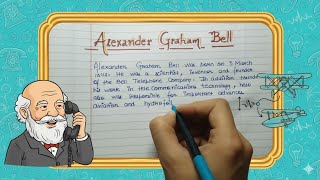 Alexander Graham Bell
Alexander Graham Bell was born on 3 March
1847. He was a scientist, inventor and founder
of the Bell Telephone Company. In addition
his work in telecommunications technology, he
also was responsible for important advances
aviation and hydrofoil